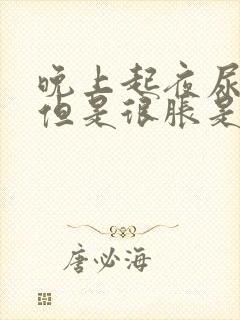 晚上起夜尿
但是很胀是
唐必海